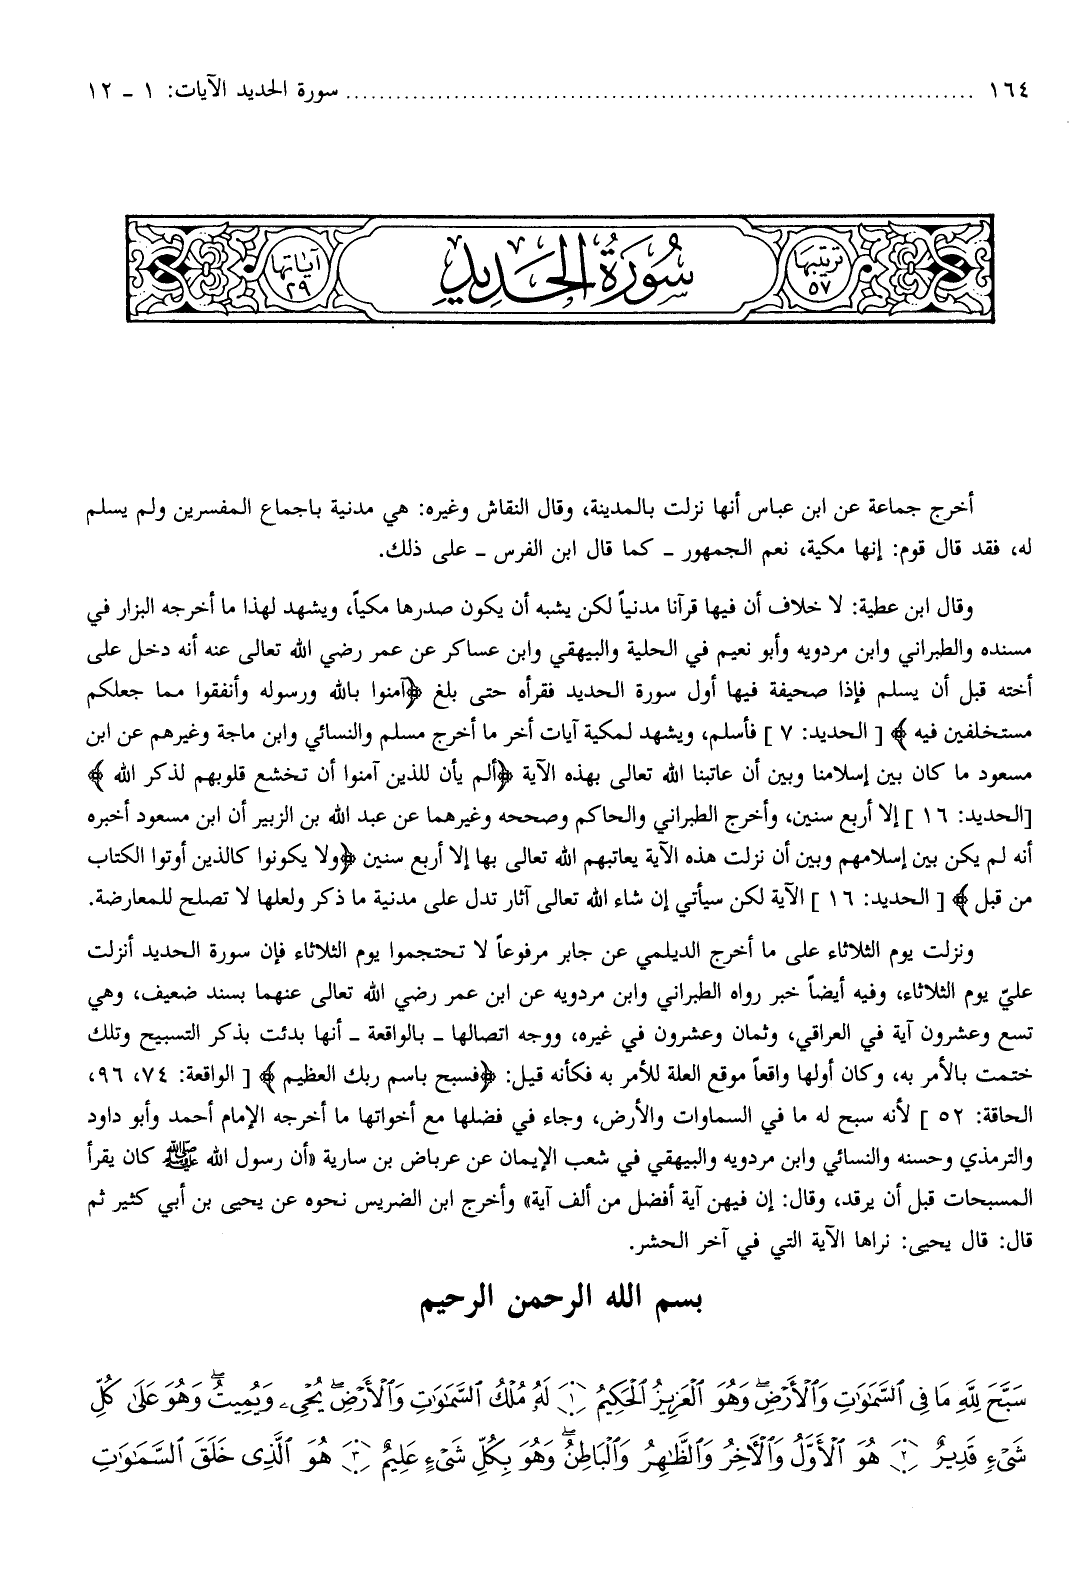 ١٦٤ ........................................................................... سورة الحديد الآيات: ١ ـ ١٢
ترتيبها ٥٧ سُورَةُ الحَدِيدِ آياتها ٢٩
أخرج جماعة عن ابن عباس أنها نزلت بالمدينة، وقال النقاش وغيره: هي مدنية باجماع المفسرين ولم يسلم
له، فقد قال قوم: إنها مكية، نعم الجمهور ـ كما قال ابن الفرس ـ على ذلك.
وقال ابن عطية: لا خلاف أن فيها قرآنا مدنياً لكن يشبه أن يكون صدرها مكياً، ويشهد لهذا ما أخرجه البزار في
مسنده والطبراني وابن مردويه وأبو نعيم في الحلية والبيهقي وابن عساكر عن عمر رضي الله تعالى عنه أنه دخل على
أخته قبل أن يسلم فإذا صحيفة فيها أول سورة الحديد فقرأه حتى بلغ ﴿آمنوا بالله ورسوله وأنفقوا مما جعلكم
مستخلفين فيه﴾ [ الحديد: ٧ ] فأسلم، ويشهد لمكية آيات أخر ما أخرج مسلم والنسائي وابن ماجة وغيرهم عن ابن
مسعود ما كان بين إسلامنا وبين أن عاتبنا الله تعالى بهذه الآية ﴿ألم يأن للذين آمنوا أن تخشع قلوبهم لذكر الله ﴾
[الحديد: ١٦ ] إلا أربع سنين، وأخرج الطبراني والحاكم وصححه وغيرهما عن عبد الله بن الزبير أن ابن مسعود أخبره
أنه لم يكن بين إسلامهم وبين أن نزلت هذه الآية يعاتبهم الله تعالى بها إلا أربع سنين ﴿ولا يكونوا كالذين أوتوا الكتاب
من قبل ﴾ [ الحديد: ١٦ ] الآية لكن سيأتي إن شاء الله تعالى آثار تدل على مدنية ما ذكر ولعلها لا تصلح للمعارضة.
ونزلت يوم الثلاثاء على ما أخرج الديلمي عن جابر مرفوعاً لا تحتجموا يوم الثلاثاء فإن سورة الحديد أنزلت
عليّ يوم الثلاثاء، وفيه أيضاً خبر رواه الطبراني وابن مردويه عن ابن عمر رضي الله تعالى عنهما بسند ضعيف، وهي
تسع وعشرون آية في العراقي، وثمان وعشرون في غيره، ووجه اتصالها ـ بالواقعة ـ أنها بدئت بذكر التسبيح وتلك
ختمت بالأمر به، وكان أولها واقعاً موقع العلة للأمر به فكأنه قيل: ﴿فسبح باسم ربك العظيم ﴾ [ الواقعة: ٧٤، ٩٦،
الحاقة: ٥٢ ] لأنه سبح له ما في السماوات والأرض، وجاء في فضلها مع أخواتها ما أخرجه الإمام أحمد وأبو داود
والترمذي وحسنه والنسائي وابن مردويه والبيهقي في شعب الإيمان عن عرباض بن سارية «أن رسول الله ﷺ كان يقرأ
المسبحات قبل أن يرقد، وقال: إن فيهن آية أفضل من ألف آية» وأخرج ابن الضريس نحوه عن يحيى بن أبي كثير ثم
قال: قال يحيى: نراها الآية التي في آخر الحشر.
بسم الله الرحمن الرحيم
سَبَّحَ لِلَّهِ مَا فِى ٱلسَّمَٰوَٰتِ وَٱلْأَرْضِۖ وَهُوَ ٱلْعَزِيزُ ٱلْحَكِيمُ ﴿١﴾ لَهُۥ مُلْكُ ٱلسَّمَٰوَٰتِ وَٱلْأَرْضِۖ يُحْىِۦ وَيُمِيتُۖ وَهُوَ عَلَىٰ كُلِّ
شَىْءٍ قَدِيرٌ ﴿٢﴾ هُوَ ٱلْأَوَّلُ وَٱلْءَاخِرُ وَٱلظَّٰهِرُ وَٱلْبَاطِنُۖ وَهُوَ بِكُلِّ شَىْءٍ عَلِيمٌ ﴿٣﴾ هُوَ ٱلَّذِى خَلَقَ ٱلسَّمَٰوَٰتِ